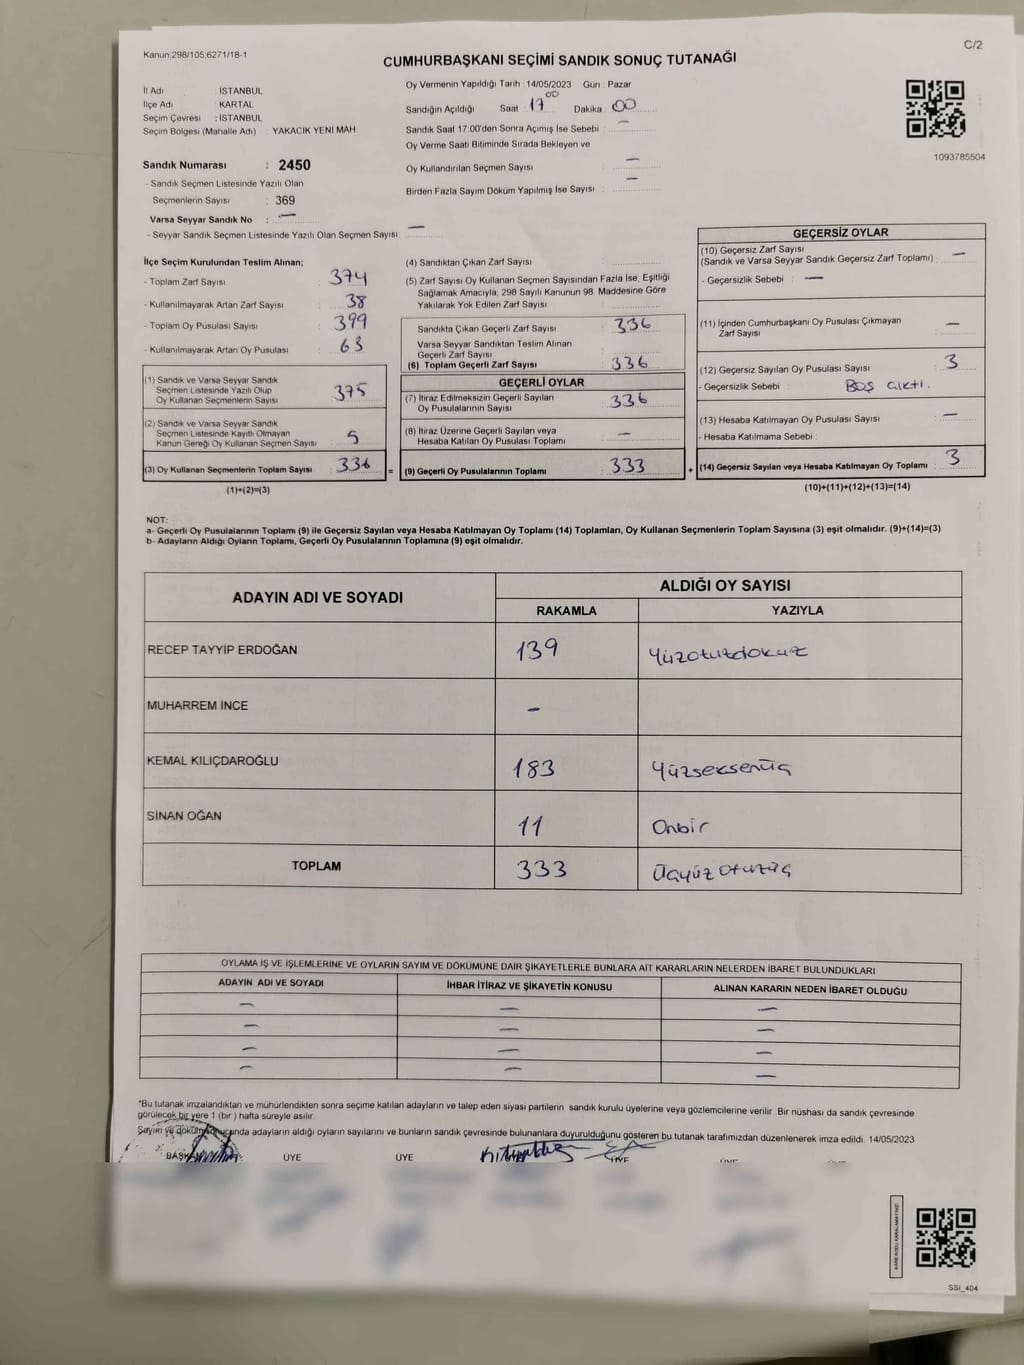 Kanun,298/105,6271/18-1
C/2
CUMHURBAŞKANI SEÇİMİ SANDIK SONUÇ TUTANAĞI
1093785504
İl Adı : İSTANBUL
İlçe Adı : KARTAL
Seçim Çevresi : İSTANBUL
Seçim Bölgesi (Mahalle Adı) : YAKACIK YENİ MAH.
Sandık Numarası : 2450
- Sandık Seçmen Listesinde Yazılı Olan
Seçmenlerin Sayısı : 369
Varsa Seyyar Sandık No : —
- Seyyar Sandık Seçmen Listesinde Yazılı Olan Seçmen Sayısı: —
Oy Vermenin Yapıldığı Tarih : 14/05/2023 Gün : Pazar
Sandığın Açıldığı Saat : 17 00 Dakika : 00
Sandık Saat 17:00'den Sonra Açımış İse Sebebi : —
Oy Verme Saati Bitiminde Sırada Bekleyen ve
Oy Kullandırılan Seçmen Sayısı : —
Birden Fazla Sayım Döküm Yapılmış İse Sayısı : —
İlçe Seçim Kurulundan Teslim Alınan;
- Toplam Zarf Sayısı : 374
- Kullanılmayarak Artan Zarf Sayısı : 38
- Toplam Oy Pusulası Sayısı : 399
- Kullanılmayarak Artan Oy Pusulası : 63
(1) Sandık ve Varsa Seyyar Sandık
Seçmen Listesinde Yazılı Olup
Oy Kullanan Seçmenlerin Sayısı : 375
(2) Sandık ve Varsa Seyyar Sandık
Seçmen Listesinde Kayıtlı Olmayan
Kanun Gereği Oy Kullanan Seçmen Sayısı : 5
(3) Oy Kullanan Seçmenlerin Toplam Sayısı : 336
(1)+(2)=(3)
(4) Sandıktan Çıkan Zarf Sayısı :
(5) Zarf Sayısı Oy Kullanan Seçmen Sayısından Fazla İse, Eşitliği
Sağlamak Amacıyla, 298 Sayılı Kanunun 98. Maddesine Göre
Yakılarak Yok Edilen Zarf Sayısı :
Sandıkta Çıkan Geçerli Zarf Sayısı : 336
Varsa Seyyar Sandıktan Teslim Alınan
Geçerli Zarf Sayısı :
(6) Toplam Geçerli Zarf Sayısı : 336
GEÇERLİ OYLAR
(7) İtiraz Edilmeksizin Geçerli Sayılan
Oy Pusulalarının Sayısı : 336
(8) İtiraz Üzerine Geçerli Sayılan veya
Hesaba Katılan Oy Pusulası Toplamı : —
= (9) Geçerli Oy Pusulalarının Toplamı : 333 +
GEÇERSİZ OYLAR
(10) Geçersiz Zarf Sayısı
(Sandık ve Varsa Seyyar Sandık Geçersiz Zarf Toplamı) : —
- Geçersizlik Sebebi : —
(11) İçinden Cumhurbaşkanı Oy Pusulası Çıkmayan
Zarf Sayısı : —
(12) Geçersiz Sayılan Oy Pusulası Sayısı : 3
- Geçersizlik Sebebi : BOŞ ÇIKTI.
(13) Hesaba Katılmayan Oy Pusulası Sayısı : —
- Hesaba Katılmama Sebebi :
(14) Geçersiz Sayılan veya Hesaba Katılmayan Oy Toplamı : 3
(10)+(11)+(12)+(13)=(14)
NOT:
a- Geçerli Oy Pusulalarının Toplamı (9) ile Geçersiz Sayılan veya Hesaba Katılmayan Oy Toplamı (14) Toplamları, Oy Kullanan Seçmenlerin Toplam Sayısına (3) eşit olmalıdır. (9)+(14)=(3)
b- Adayların Aldığı Oyların Toplamı, Geçerli Oy Pusulalarının Toplamına (9) eşit olmalıdır.
ADAYIN ADI VE SOYADI ALDIĞI OY SAYISI
RAKAMLA YAZIYLA
RECEP TAYYİP ERDOĞAN 139 Yüzotuzdokuz
MUHARREM İNCE -
KEMAL KILIÇDAROĞLU 183 Yüzseksenüç
SİNAN OĞAN 11 Onbir
TOPLAM 333 Üçyüz otuzüç
OYLAMA İŞ VE İŞLEMLERİNE VE OYLARIN SAYIM VE DÖKÜMÜNE DAİR ŞİKAYETLERLE BUNLARA AİT KARARLARIN NELERDEN İBARET BULUNDUKLARI
ADAYIN ADI VE SOYADI İHBAR İTİRAZ VE ŞİKAYETİN KONUSU ALINAN KARARIN NEDEN İBARET OLDUĞU
— — —
— — —
— — —
— — —
*Bu tutanak imzalandıktan ve mühürlendikten sonra seçime katılan adayların ve talep eden siyasi partilerin sandık kurulu üyelerine veya gözlemcilerine verilir. Bir nüshası da sandık çevresinde
görülecek bir yere 1 (bir ) hafta süreyle asılır.
Sayım ve döküm sonucunda adayların aldığı oyların sayılarını ve bunların sandık çevresinde bulunanlara duyurulduğunu gösteren bu tutanak tarafımızdan düzenlenerek imza edildi. 14/05/2023
BAŞKAN ÜYE ÜYE ÜYE
SSİ_404